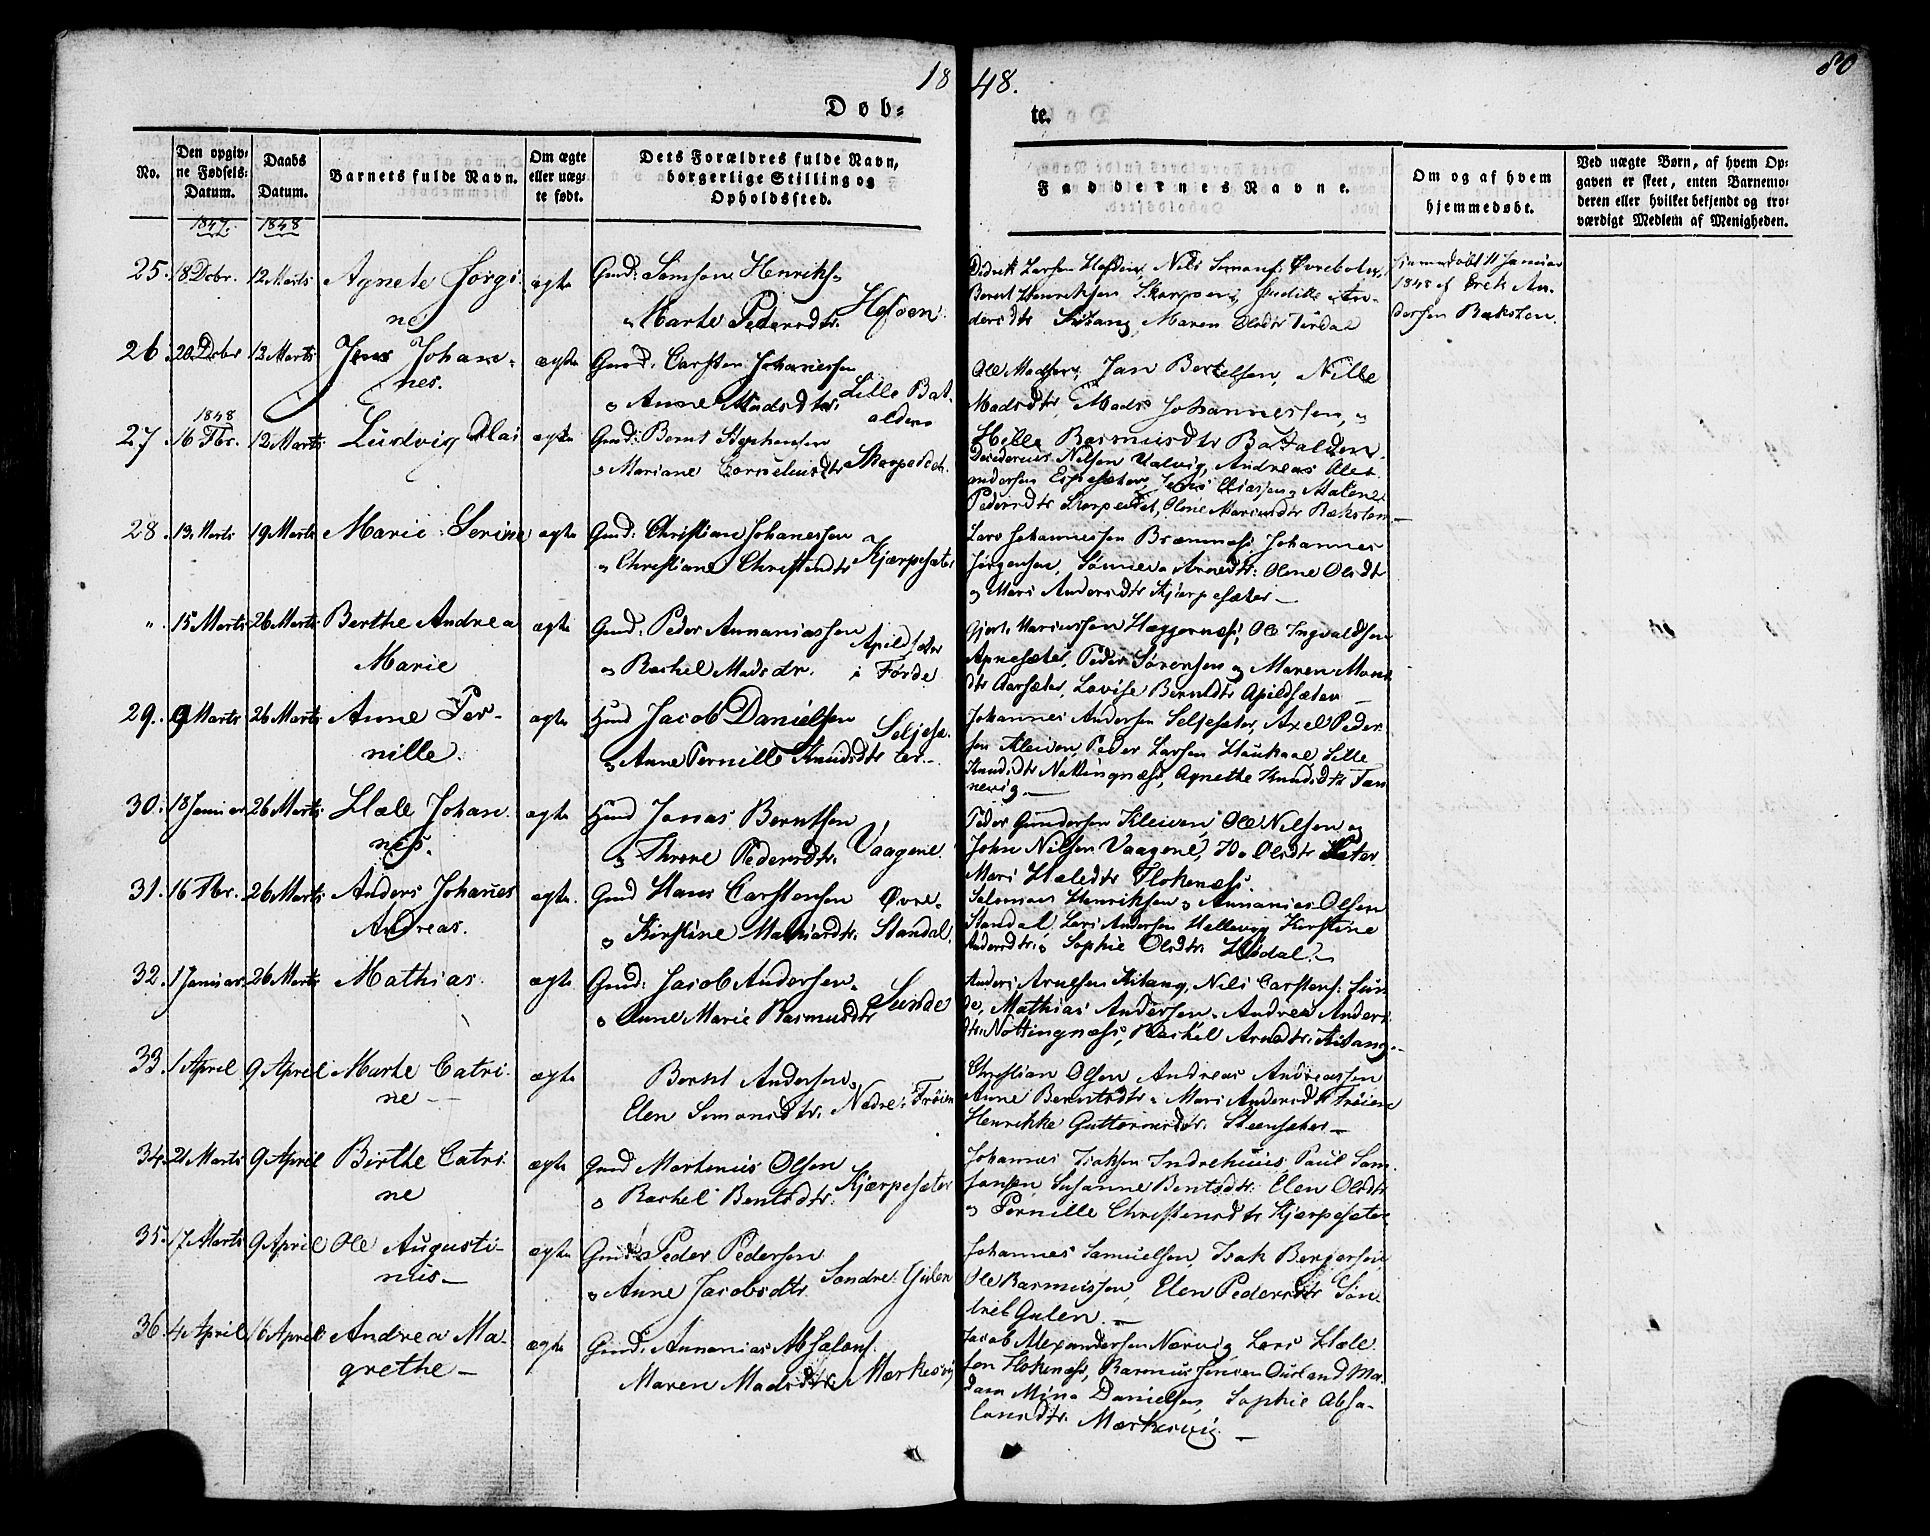 18 48.
80
Døb= te.
No.
Den opgiv=
ne Fødsels=
Datum.
Daabs
Datum.
Barnets fulde Navn.
Om ægte
eller uæg=
te født.
Dets Forældres fulde Navn,
borgerlige Stilling og
Opholdssted.
Faddernes Navne.
Om og af hvem
hjemmedøbt.
Ved uægte Børn, af hvem Op=
gaven er skeet, enten Barnemo=
deren eller hvilket bekjendt og tro=
værdigt Medlem af Menigheden.
1847. 1848
25. 18 Dcbr. 12 Marts Agnete Jørgi
ne
ægte Gmd: Simson Henriks
" Marthe Pedersdtr.
Nils
Bernt Henriksen
dersdtr Maren Olsdtr
1848 af Erik An
dersen Bakston.
26. 20 Dcbr 12 Marts Jens Johan=
nes.
ægte Gmd: Carsten Johannessen
" Anne Madsdtr. Lille Bat
alden
Ole Madsen, Jan Bertelsen, Nille
Madsdtr, Mads Johannessen, "
Hille Rasmusdtr Batalden
27. 1848
16 Fbr. 12 Marts Ludvig Elai
ægte Gmd: Bernt Stephensen
" Mariane Corneliusdtr
Nilsen Valvig, Andreas Alex
andersen Espesæter, Malene
Pedersdtr Oline
28. 13 Marts 19 Marts Marie Serine ægte Gmd: Christian Johanessen
" Christiane Christensdtr Kjærpesæter
Lars Johannessen Johannes
Jørgensen, Arnedtr: Oline Olsdtr
" Mari Andersdtr Kjærpesæter —
". 15 Marts 26 Marts Berthe Andrea
Marie
ægte Gmd: Peder Annaniassen
" Rachel Madsdr. Apildsæter
i Førde
Ole Ingvaldsen
Peder Sørensen og Maren Mons
dtr Aarsæter, Lovise Berntdtr Apildsæter
29. 9 Marts 26 Marts Anne Per=
nille.
ægte Hmd Jacob Danielsen
" Anne Pernille Knudsdtr Seljesæ
ter —
Johannes Andersen Seljesæter, Axel Peder
sen Kleiven, Peder Larsen Haukaae, Lille
Knudsdtr Nottingnæss, Agnethe Knudsdtr Fan
nevig —
30. 18 Januar 26 Marts Hæle Johan
nes.
ægte Hmd Jonas Berntsen
" Throne Pedersdtr. Vaagene.
Peder Gundersen Kleiven, Ole Nilsen og
John Nilsen Vaagene, Ida Olsdtr Sæter
Mari Hæledtr Flokenæss.
31. 16 Fbr. 26 Marts Anders Johanes
Andreas.
ægte. Gmd Hans Carstensen
" Kirstine Mathiasdtr. Øvre=
Standal.
Salomon Henriksen " Annanias Olsen
Standal, Lars Andersen Hellevig Kirstine
Andersdtr: " Sophie Olsdtr.
32. 1 Januar 26 Marts Mathias. ægte Gmd: Jacob Andersen
" Anne Marie Rasmusdtr Sunde
Anders Arnesen Aitang, Nils Carstens: Sun
de, Mathias Andersen, Andrea Anders
dtr. Nottingnæss, Rachel Arnedtr. Aitang —
33. 1 April 9 April Marthe Catri
ne —
ægte Bernt Andersen
Elen Simonsdtr. Nedre Frøien
Christian Olsen Andreas Andreassen
Anne Berntsdtr " Mari Andersdtr Frøien
Henrikke Guttormsdtr. Steensæter —
34. 21 Marts 9 April Birthe Catri
ne
ægte Gmd Martinus Olsen
" Rachel Bentsdtr. Kjærpesæter
Johannes Isaksen Indrehuus, Paul Sam
sonsen Susanne Bentsdtr: Elen Olsdtr
" Pernille Christensdtr Kjærpesæter
35. 17 Marts 9 April Ole Augusti=
nus —
ægte Gmd: Peder Pedersen
" Anne Jacobsdtr. Søndre Gulen
Johannes Samuelsen, Isak Bergersen,
Ole Rasmussen, Elen Pedersdtr Søn
dre Gulen. —
36. 4 April 16 April Andrea Ma=
grethe —
ægte Gmd: Annanias Absalons.
Maren Madsdtr. Mærkesvig
Jacob Alexandersen Nærvig, Lars Hæle
sen Flokenæss, Rasmus Jensen Ourland Ma
dam Mina Danielsen, Sophie Absa=
lonsdtr. Mærkesvig —